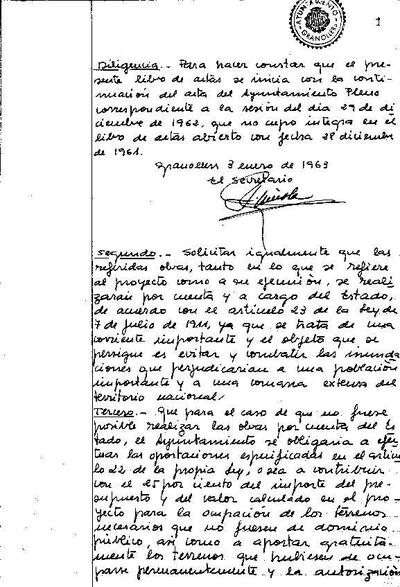 AYUNTAMIENTO
GRANOLLERS
1
Diligencia.- Para hacer constar que el pre-
sente libro de actas se inicia con la conti-
nuación del acta del Ayuntamiento Pleno
correspondiente a la sesión del dia 29 de di
ciembre de 1962, que no cupo integra en el
libro de actas abierto con fecha 28 diciembre
de 1961.
Granollers 3 enero de 1963
El Secretario
Segundo.- Solicitar igualmente que las
referidas obras, tanto en lo que se refiere
al proyecto como a su ejecución, se reali
zarán por cuenta y a cargo del Estado,
de acuerdo con el articulo 23 de la Ley de
7 de julio de 1911, ya que se trata de una
corriente importante y el objeto que se
persigue es evitar y combatir las inunda
ciones que perjudicarian a una población
importante y a una comarca extensa del
territorio nacional.
Tercero.- Que para el caso de que no fuese
posible realizar las obras por cuenta del Es
tado, el Ayuntamiento se obligaria a efec
tuar las aportaciones especificadas en el articu
lo 22 de la propia Ley, o sea a contribuir
con el 25 por ciento del importe del pre-
supuesto y del valor calculado en el pro
yecto para la ocupación de los terrenos
necesarios que no fuesen de dominio
público, asi como a aportar gratuita-
mente los terrenos que hubiesen de ocu-
parse permanentemente y la autorización